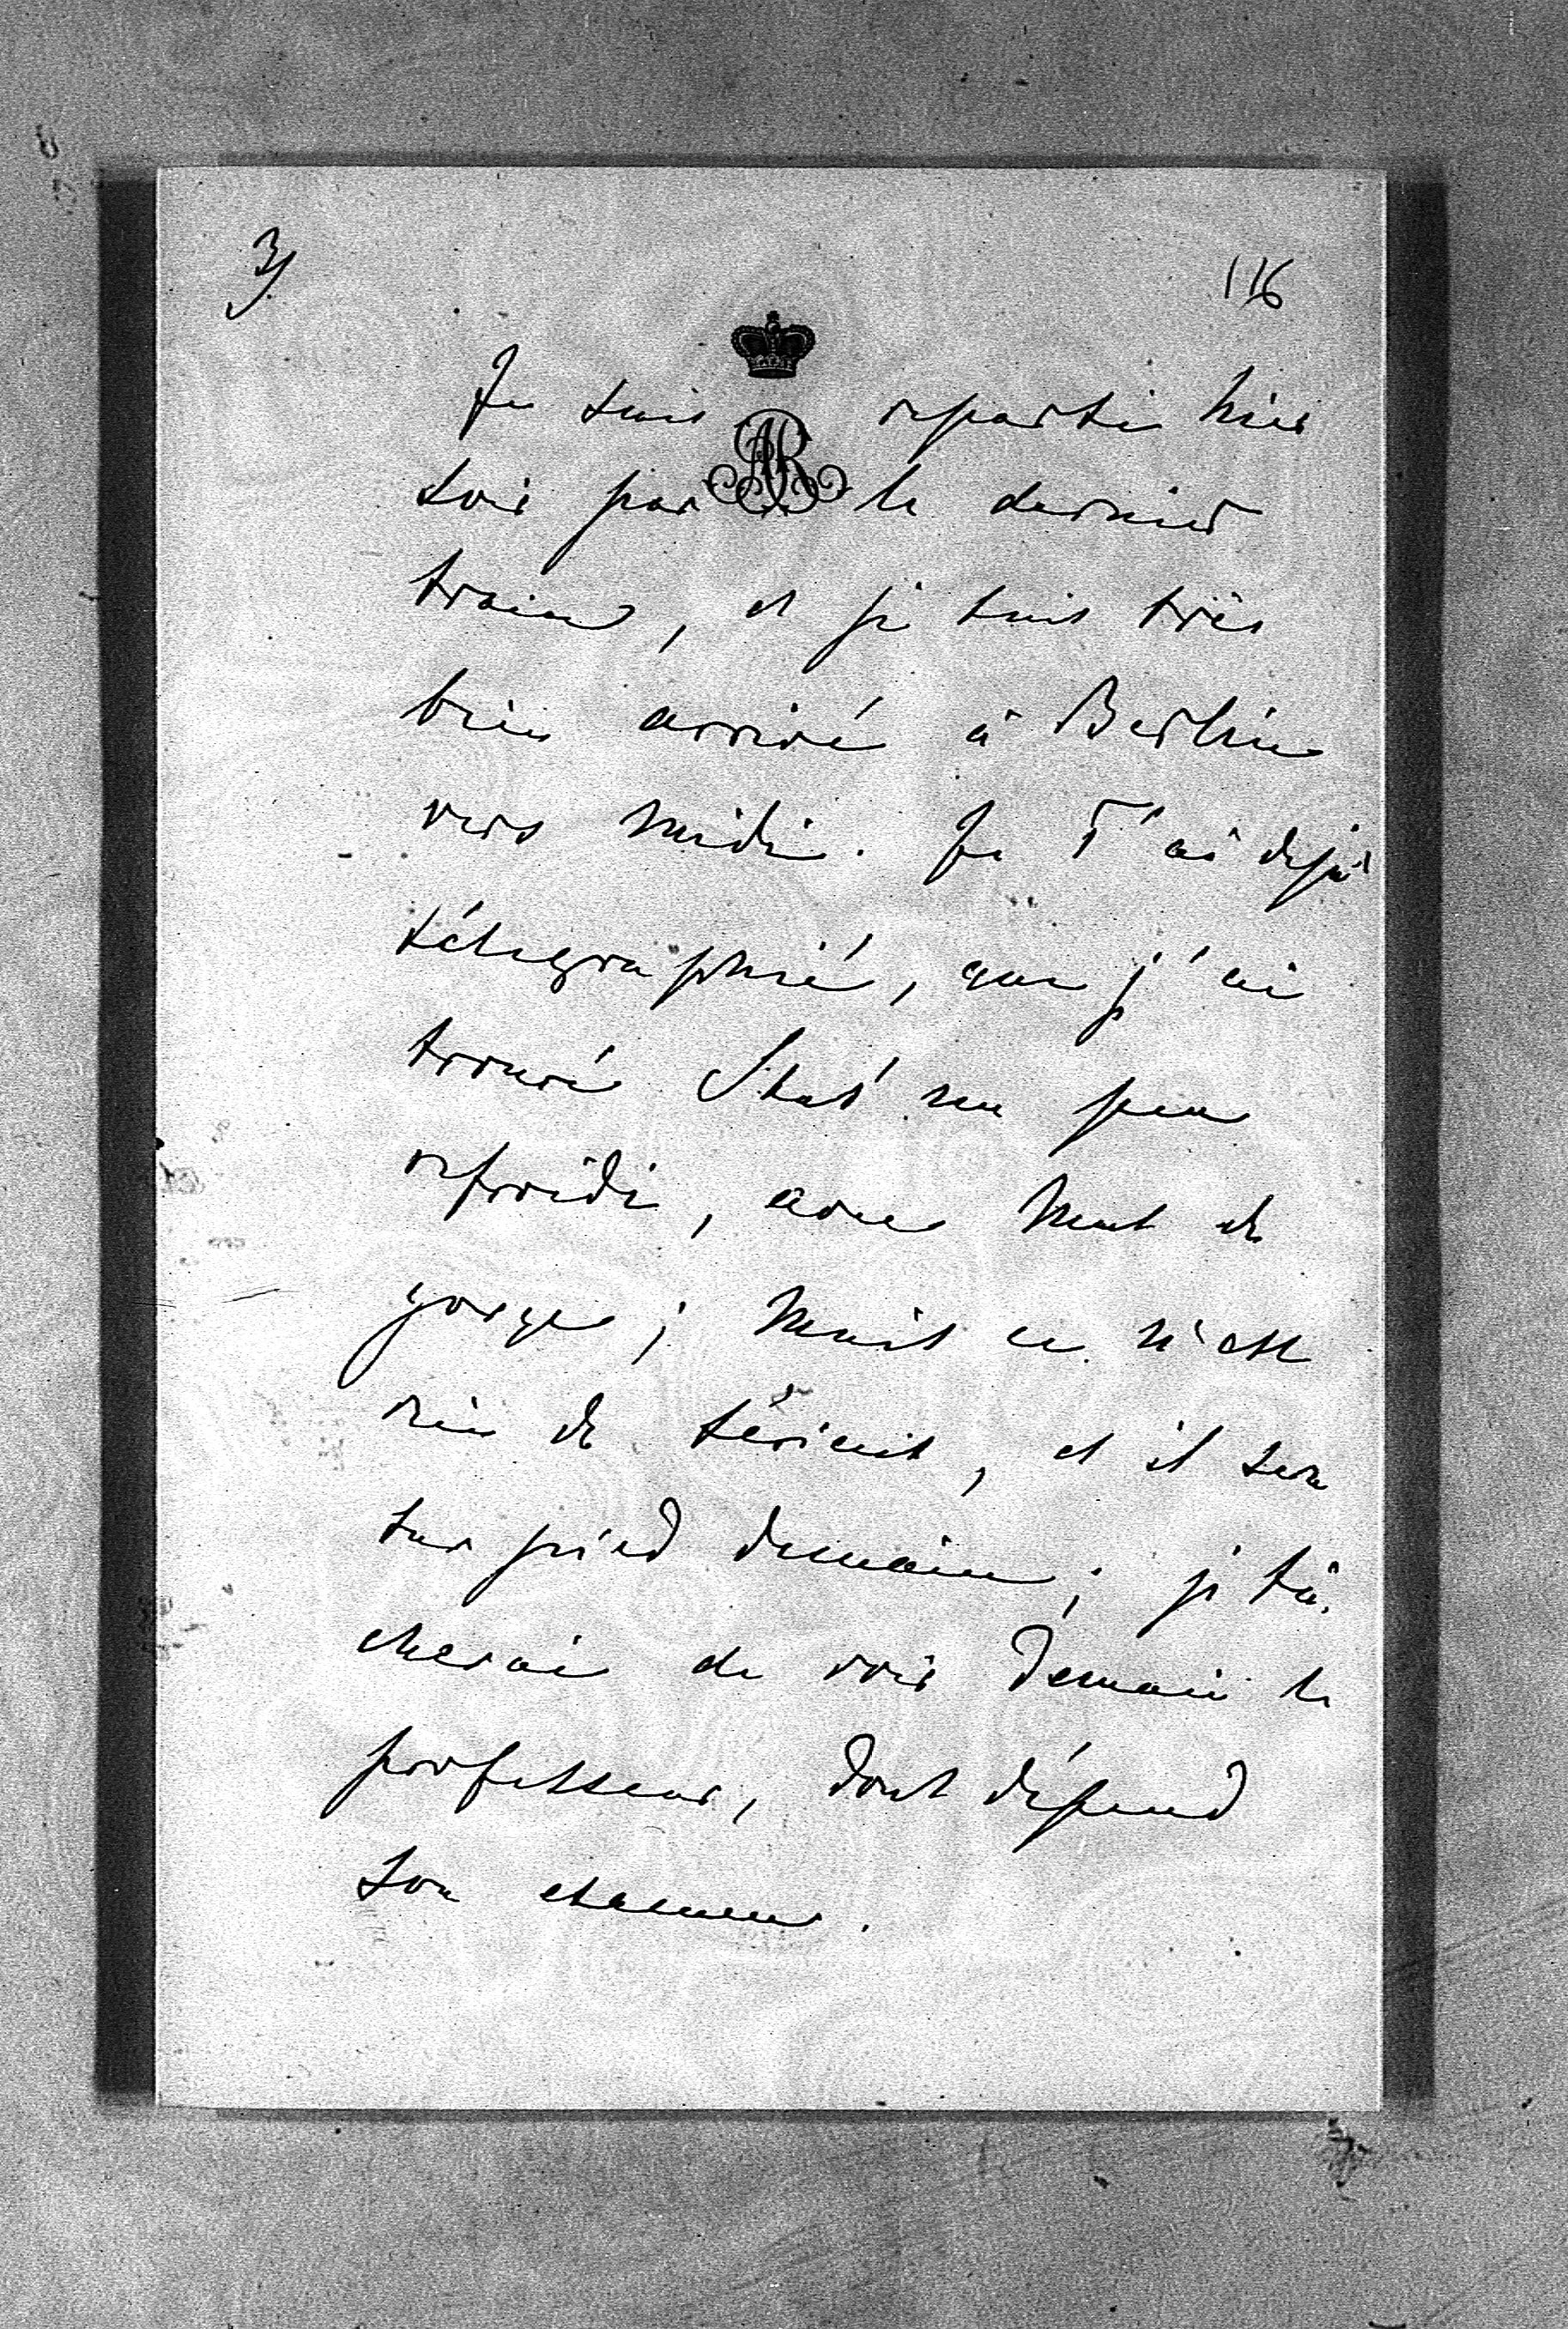 3/
116
AR
Je suis reparti hier
soir par le dernier
train, et je suis très
bien arrivé à Berlin
vers midi. Je T'ai déjà
télégraphié, que j'ai
trouvé Staś un peu
refroidi, avec mal de
gorge; mais ce n'est
rien de sérieux, et il sera
sur pied demain; je tâ-
cherai de voir demain le
professeur, dont dépend
son examen.